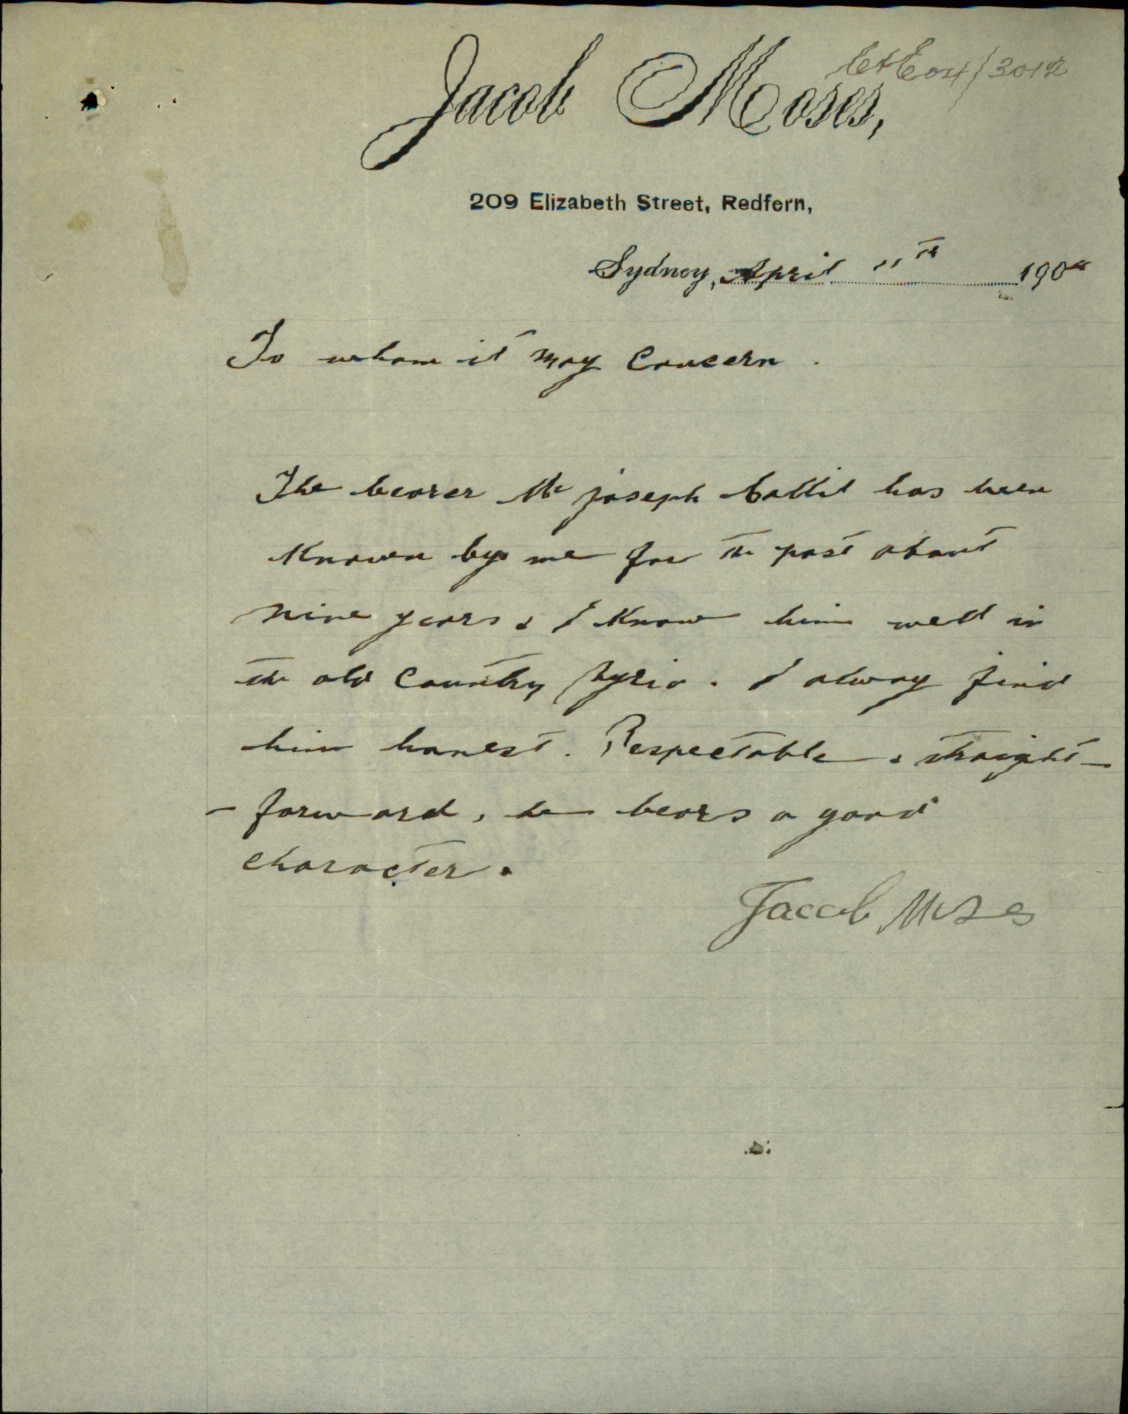 Jacob Moses,
209 Elizabeth Street, Redfern,
Sydney, April 11th 190
To whom it may Concern.
The bearer Mr joseph has been
Known by me for the past about
nine years & I Know him well in
the old Country Syria. I alway find
him honest. Respectable & straight-
-forward, he bears a good
character.
Jacob Moses